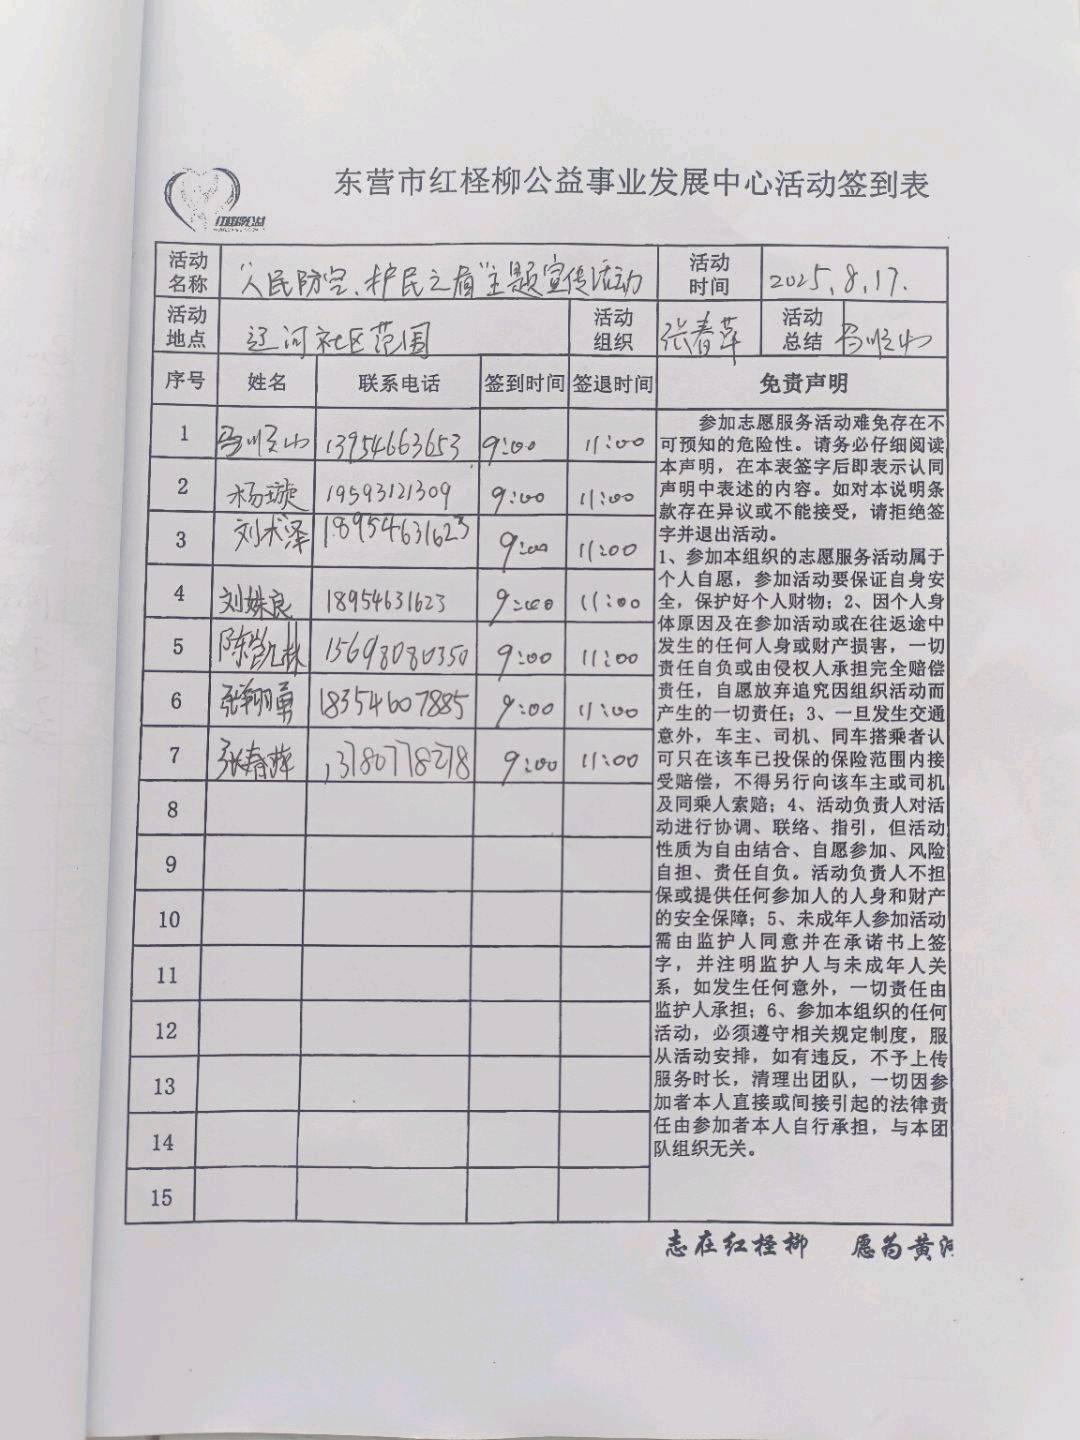 东营市红柽柳公益事业发展中心活动签到表
红柽柳公益
活动名称 "人民防空、护民之盾"主题宣传活动 活动时间 2025.8.17.
活动地点 辽河社区范围 活动组织 张春萍 活动总结
序号 姓名 联系电话 签到时间 签退时间 免责声明
1 13954663653 9:00 11:00
2 杨璇 19593121309 9:00 11:00
3 刘术泽 18954631623 9:00 11:00
4 刘姝良 18954631623 9:00 11:00
5 陈凯林 15698080350 9:00 11:00
6 张翔勇 18354607885 9:00 11:00
7 张春萍 13780778278 9:00 11:00
8
9
10
11
12
13
14
15
参加志愿服务活动难免存在不
可预知的危险性。请务必仔细阅读
本声明，在本表签字后即表示认同
声明中表述的内容。如对本说明条
款存在异议或不能接受，请拒绝签
字并退出活动。
1、参加本组织的志愿服务活动属于
个人自愿，参加活动要保证自身安
全，保护好个人财物；2、因个人身
体原因及在参加活动或在往返途中
发生的任何人身或财产损害，一切
责任自负或由侵权人承担完全赔偿
责任，自愿放弃追究因组织活动而
产生的一切责任；3、一旦发生交通
意外，车主、司机、同车搭乘者认
可只在该车已投保的保险范围内接
受赔偿，不得另行向该车主或司机
及同乘人索赔；4、活动负责人对活
动进行协调、联络、指引，但活动
性质为自由结合、自愿参加、风险
自担、责任自负。活动负责人不担
保或提供任何参加人的人身和财产
的安全保障；5、未成年人参加活动
需由监护人同意并在承诺书上签
字，并注明监护人与未成年人关
系，如发生任何意外，一切责任由
监护人承担；6、参加本组织的任何
活动，必须遵守相关规定制度，服
从活动安排，如有违反，不予上传
服务时长，清理出团队，一切因参
加者本人直接或间接引起的法律责
任由参加者本人自行承担，与本团
队组织无关。
志在红柽柳 愿为黄河